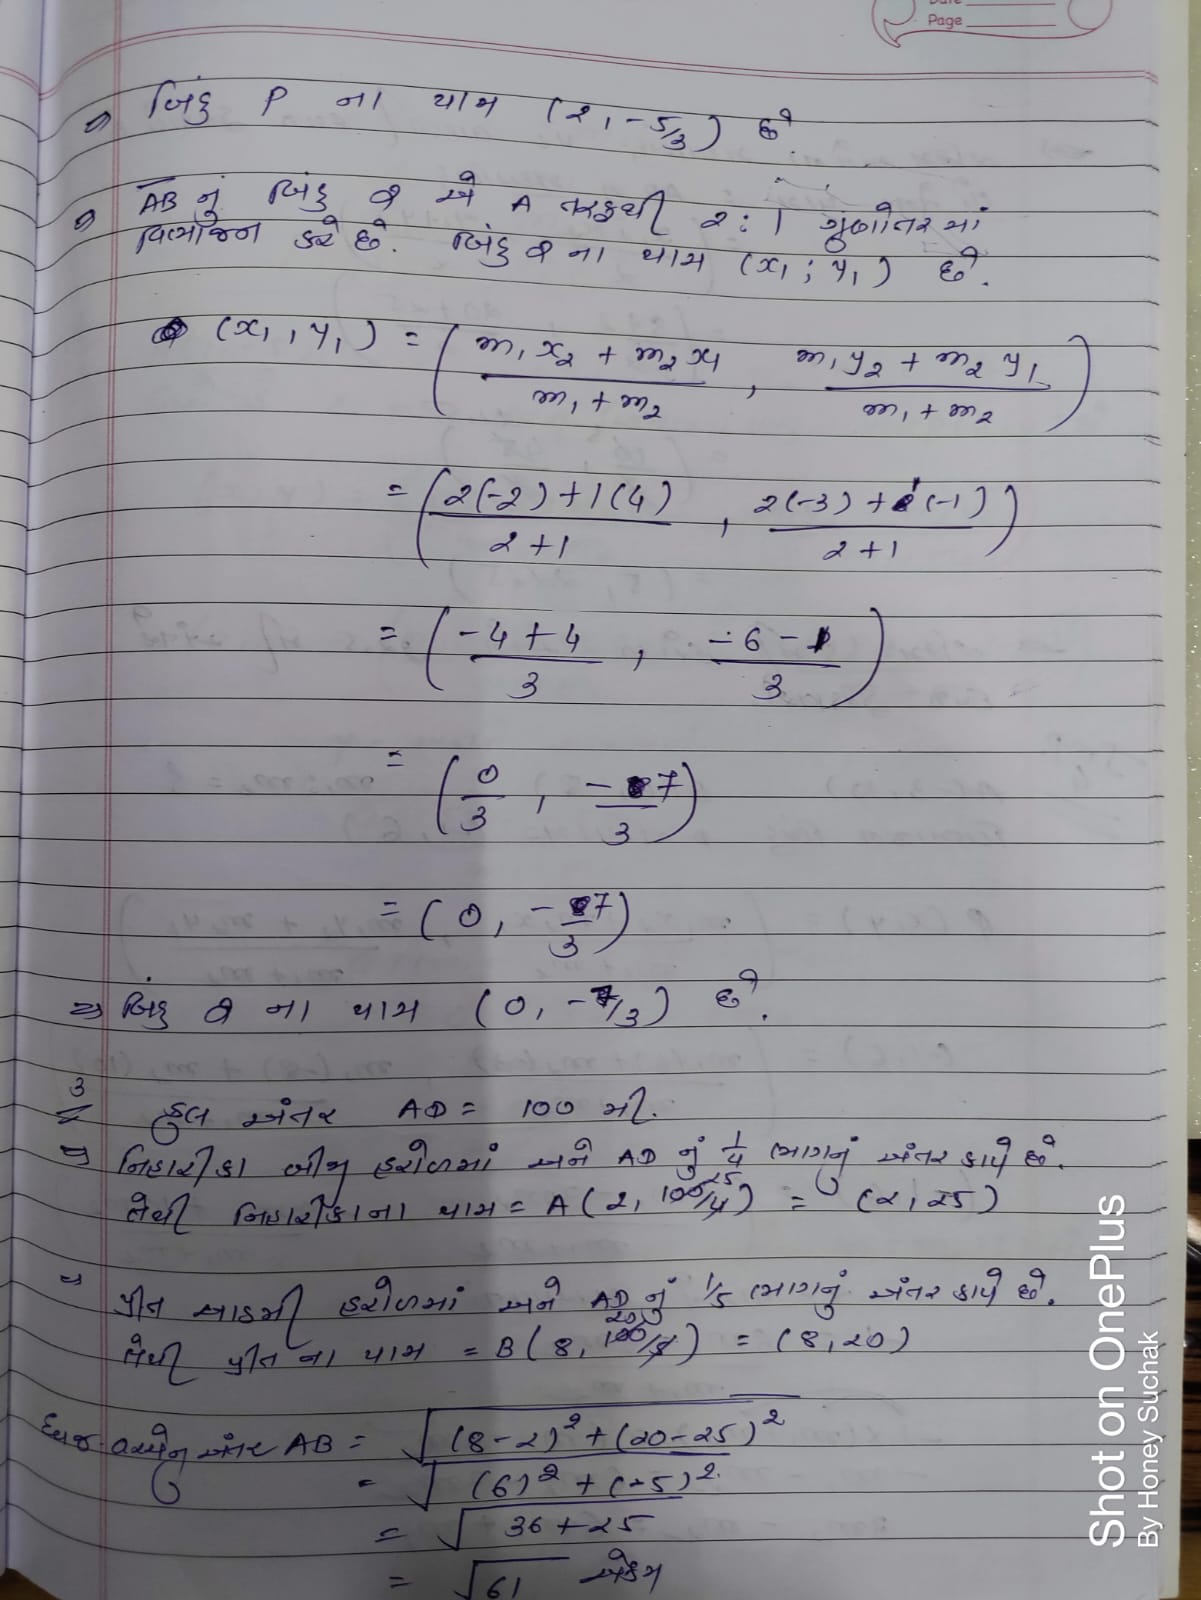 Date
Page
⇒ બિંદુ P ના યામ (2, -5/3) છે.
⇒ AB નું બિંદુ Q એ A તરફથી 2 : 1 ગુણોતરમાં
વિભાજન કરે છે. બિંદુ Q ના યામ (x1 ; y1) છે.
(x1 , y1) = ( m1x2 + m2x1 / m1 + m2 , m1y2 + m2y1 / m1 + m2 )
= ( 2(-2) + 1(4) / 2+1 , 2(-3) + 1(-1) / 2+1 )
= ( -4+4 / 3 , -6-1 / 3 )
= ( 0/3 , -7/3 )
= ( 0, -7/3 )
⇒ બિંદુ Q ના યામ (0, -7/3) છે.
3 કુલ અંતર AD = 100 મી.
⇒ નિહારીકા બીજી હરોળમાં અને AD નું 1/4 ભાગનું અંતર કાપે છે.
તેથી નિહારીકાના યામ = A (2, 100/4) 25 = (2, 25)
⇒ પ્રીત આઠમી હરોળમાં અને AD નું 1/5 ભાગનું અંતર કાપે છે.
તેથી પ્રીત ના યામ = B (8, 100/5) 20 = (8, 20)
ધ્વજ વચ્ચેનુ અંતર AB = √(8-2)² + (20-25)²
= √(6)² + (-5)²
= √36 + 25
= √61 એકમ
Shot on OnePlus
By Honey Suchak